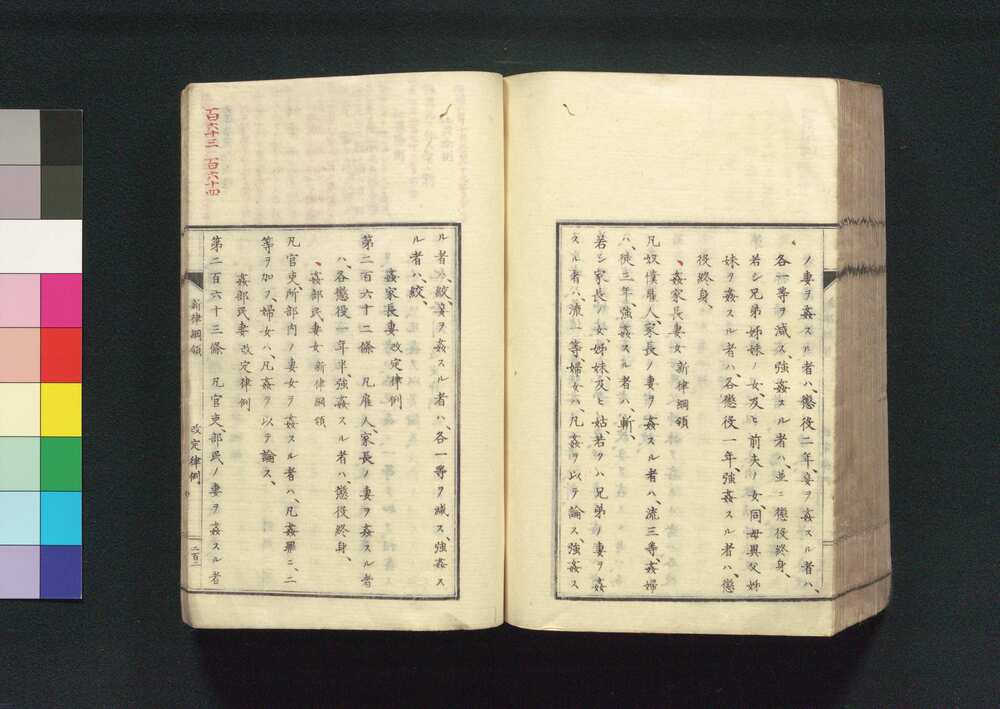 ノ妻ヲ姦スル者ハ、懲役二年、妾ヲ姦スル者ハ、
各一等ヲ減ス、強姦スル者ハ、並ニ懲役終身、
若シ兄弟姉妹ノ女、及ヒ前夫ノ女、同母異父姉
妹ヲ姦スル者ハ、各懲役一年、強姦スル者ハ、懲
役終身、
姦家長妻女 新律綱領
凡奴僕雇人、家長ノ妻ヲ姦スル者ハ、流三等、姦婦
ハ、徒三年、強姦スル者ハ、斬、
若シ家長ノ女、姉妹、及ヒ姑、若クハ兄弟ノ妻ヲ姦
スル者ハ、流一等、婦女ハ、凡姦ヲ以テ論ス、強姦ス
ル者ハ、絞、妾ヲ姦スル者ハ、各一等ヲ減ス、強姦ス
ル者ハ、絞、
姦家長妻 改定律例
第二百六十二條 凡雇人家長ノ妻ヲ姦スル者
ハ、各懲役一年半、強姦スル者ハ、懲役終身、
姦部民妻女 新律綱領
凡官吏、所部内ノ妻女ヲ姦スル者ハ、凡姦罪ニ、二
等ヲ加ヲ、婦女ハ、凡姦ヲ以テ論ス、
姦部民妻 改定律例
第二百六十三條 凡官吏、部民ノ妻ヲ姦スル者
新律綱領 改定律例
二百二
一百六十三 一百六十四